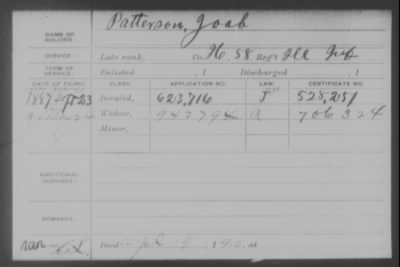 Patterson, Joab
NAME OF SOLDIER:
SERVICE: Late rank, Co. H, 58 Reg't Ill Inf
TERM OF SERVICE: Enlisted , 1 Discharged , 1
DATE OF FILING. CLASS. APPLICATION NO. LAW. CERTIFICATE NO.
1887 Apr 23 Invalid, 623,716 J 528,251
Widow, 942794 706324
Minor,
ADDITIONAL SERVICES:
REMARKS:
Died 19, 191 , at